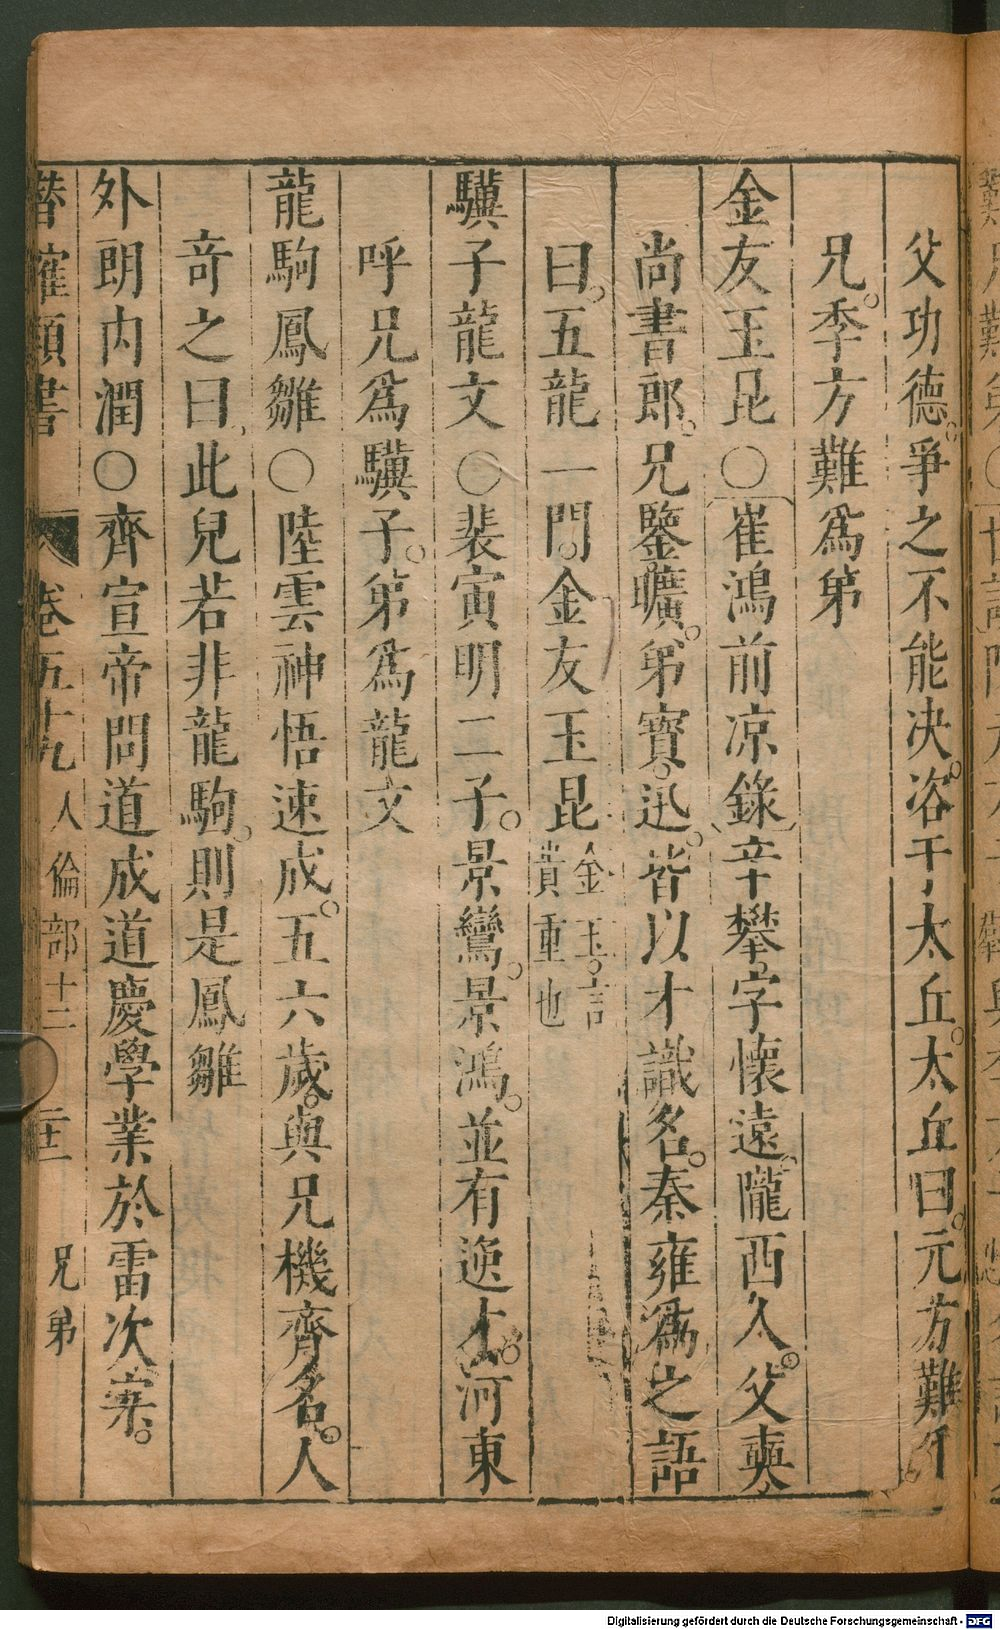 父功德。爭之不能决。咨于太丘。太丘曰。元方難
兄。季方難爲弟
金友玉昆○崔鴻前凉錄辛攀。字懷遠。隴西人。父奭
尚書郎。兄鑒曠。弟寶。迅。皆以才識名。秦雍爲之語
曰。五龍一門。金友玉昆金玉。言貴重也
驥子龍文○裴寅明二子。景鸞。景鴻。並有逸才。河東
呼兄爲驥子。弟爲龍文
龍駒鳳雛○陸雲神悟速成。五六歲。與兄機齊名。人
奇之曰、此兒若非龍駒。則是鳳雛
外朗内潤○齊宣帝問道成道慶學業於雷次宗。
潛確類書 卷五十九 人倫部十二 二十二 兄弟
Digitalisierung gefördert durch die Deutsche Forschungsgemeinschaft - DFG